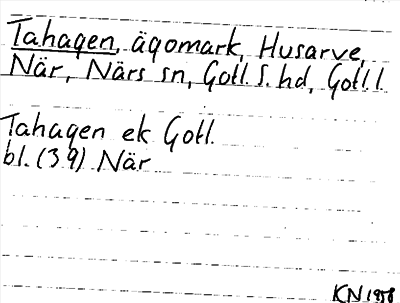 Tahagen, ägomark, Husarve,
När, Närs sn, Gotl. S. hd, Gotl. l.
Tahagen ek Gotl.
bl. (39) När
KN 1958